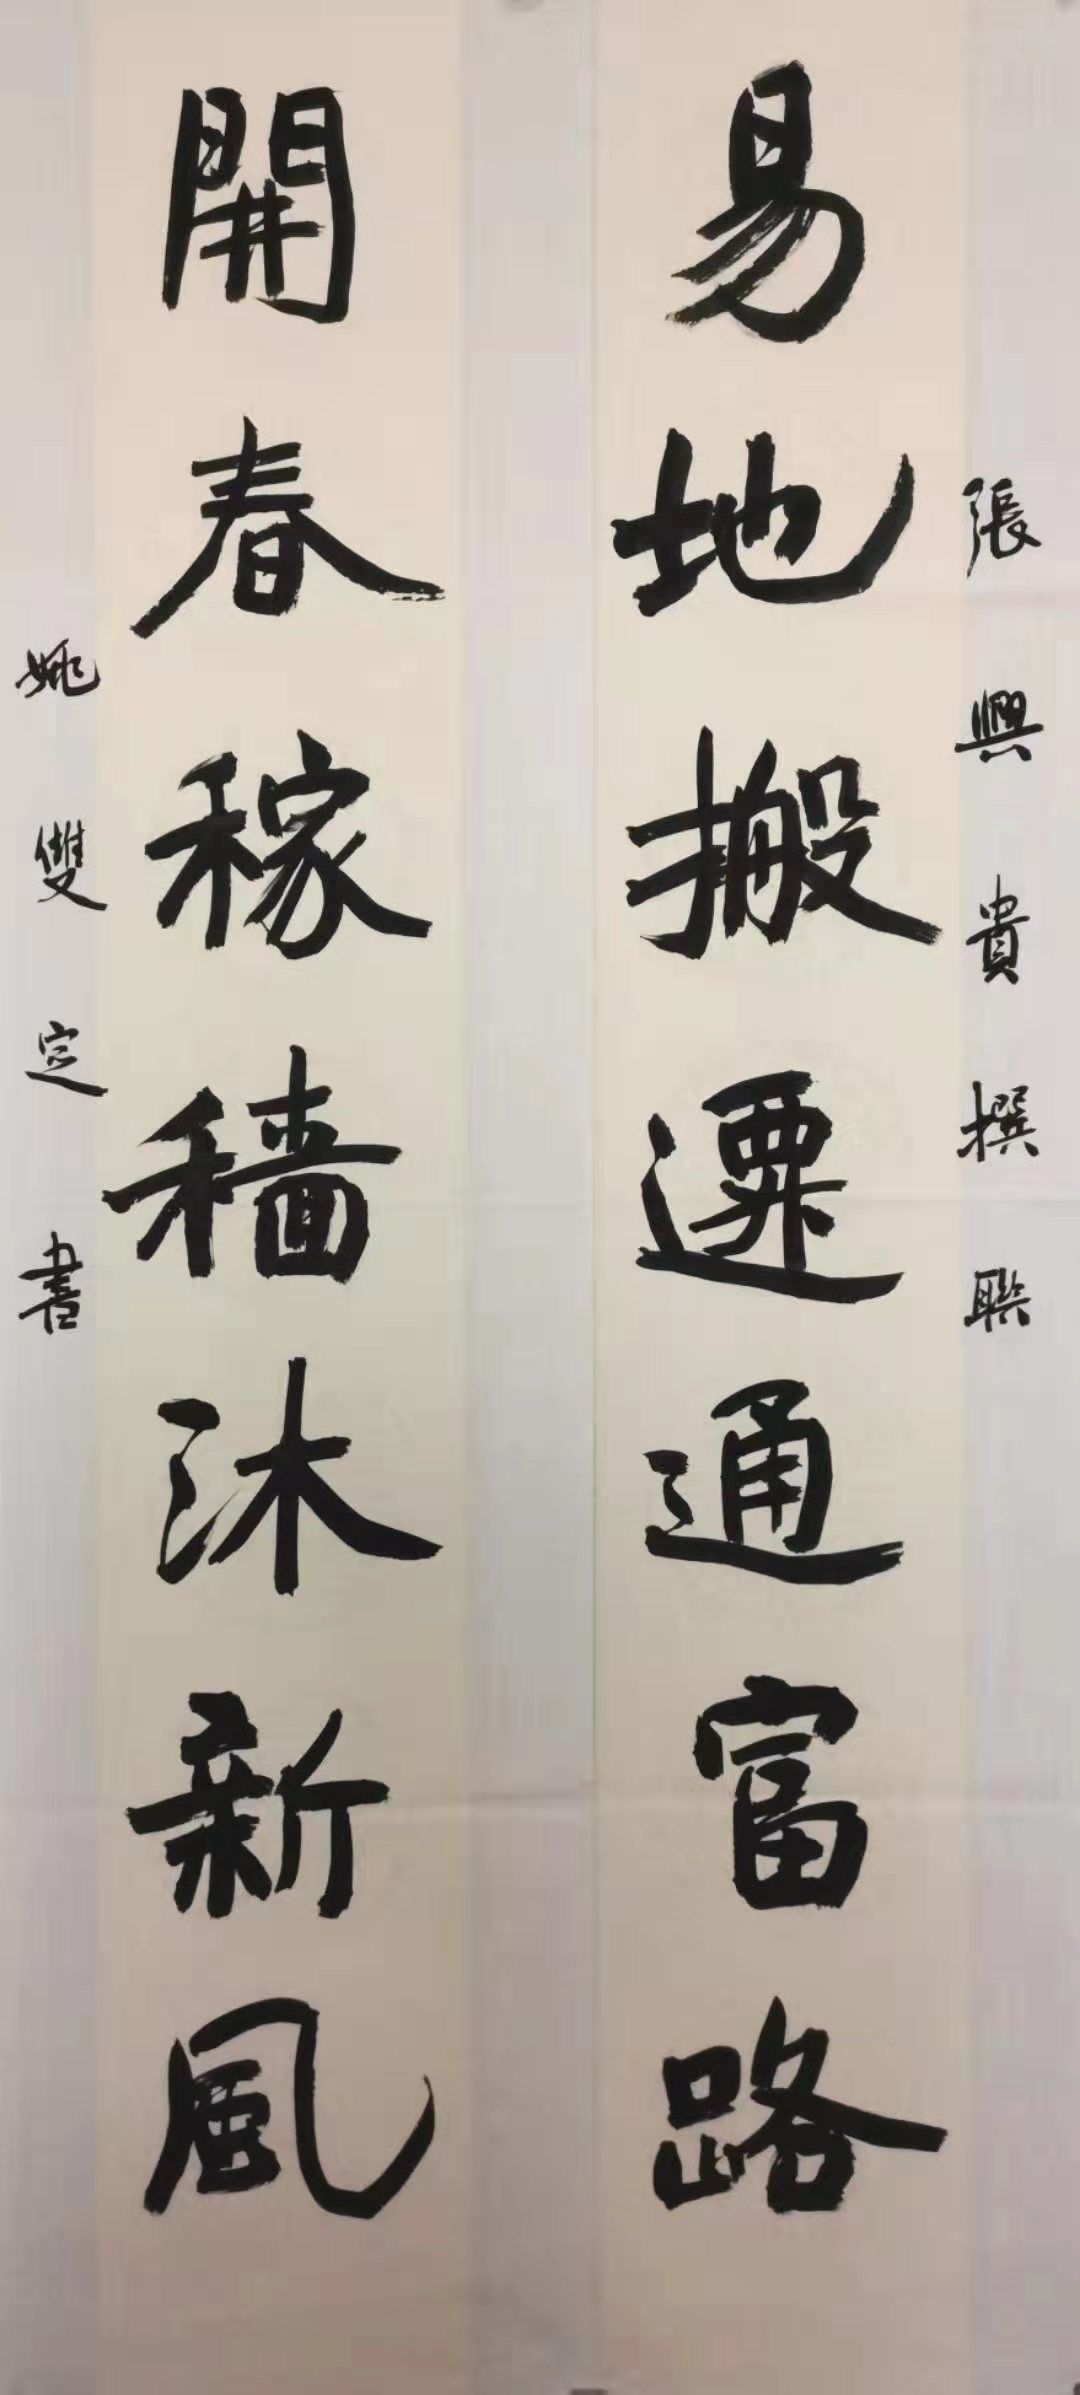 張興貴撰聯
易地搬遷通富路
開春稼穡沐新風
姚雙定書